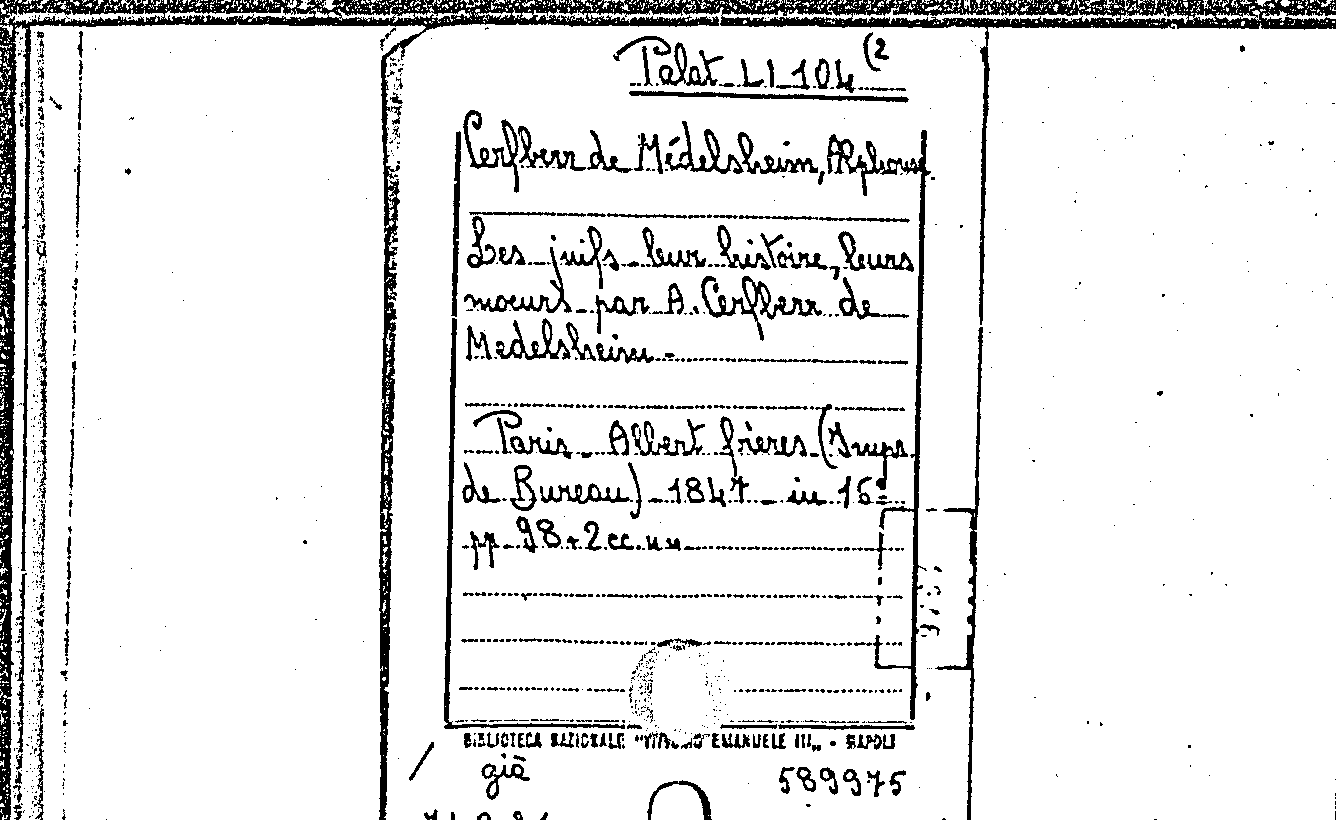 Palat LI 104 (2
Cerfberr de Médelsheim, Alphonse
Les juifs leur histoire, leurs
moeurs par A. Cerfberr de
Medelsheim -
Paris Albert frères (Imps
de Bureau) 1847 in 16º
pp 98+2cc.nn
BIBLIOTECA NAZIONALE "VITTORIO EMANUELE III„ - NAPOLI
già 589975